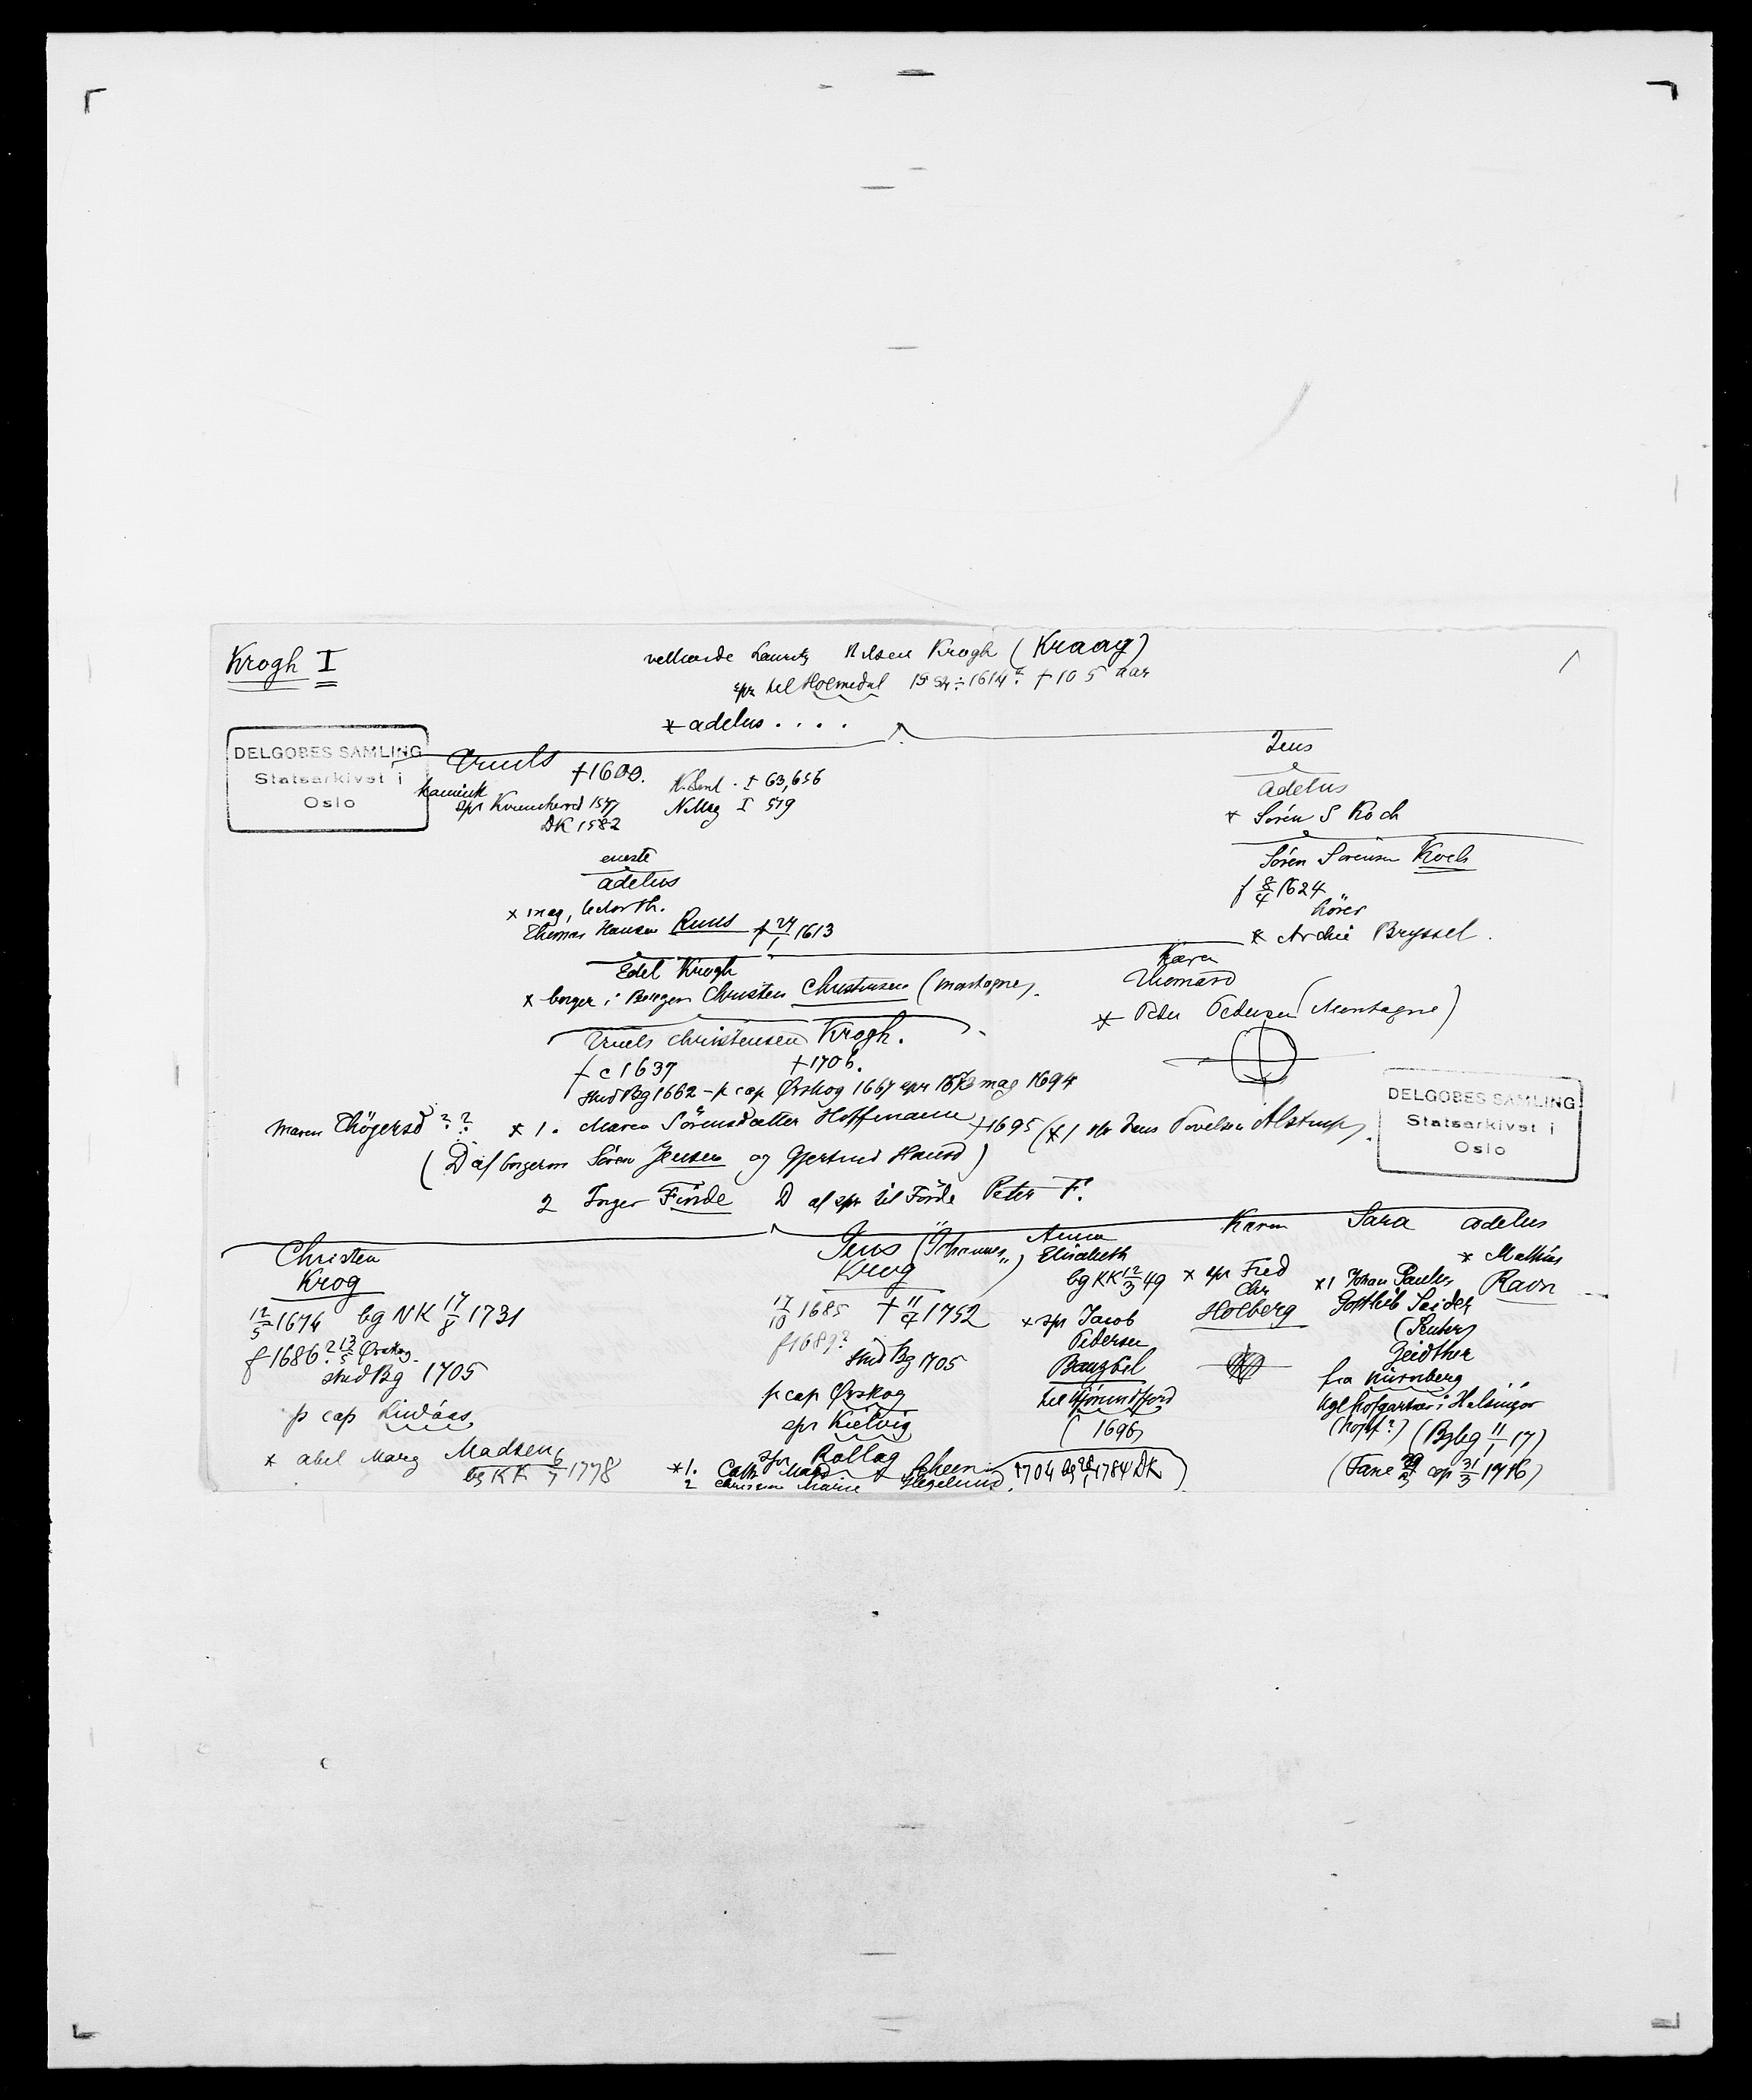 Krogh I
Lauritz Nilsen Krogh (Kraag)
spr til Holmedal 1614? † 105 aar
* adelus . . . .
1
DELGOBES SAMLING
Statsarkivet i
Oslo
Truels †1600.
spr Kvinnherred 1577
DK 1582
N Mag I 519
Jens
adelus
* Sören S Koch
Sören Sörensen Koch
f 8/4 1624
hörer
* Bryssel.
eneste
adelus
* mag, lector th.
Thomas Hansen Ruus † 24/1 1613
Edel Krogh
* borger i Bergen Christen Christensen (Montagne)
Karen
Thomasd
* Peder Pedersen (Montagne)
Truels Christensen Krogh.
f c 1637 †1706.
stud Bg 1662 - p cap Ørskog 1667 spr 1673 mag 1694
Maren Thögersd ?? * 1. Maren Sörensdatter Hoffmann †1695 (* 1 Jens Povelsen Alstrup)
(D af borgerm Sören Jensen og Gjertrud Hansd)
2 Inger Förde D af spr til Förde Peter F.
DELGOBES SAMLING
Statsarkivet i
Oslo
Christen
Krog
12/5 1674 bg NK 17/8 1731
f 1686? 13/5 Ørskog
stud Bg 1705
p cap Lindaas
* abel Marg Madsen
bg KK 6/7 1778
Jens (Johannes)
Krog
17/10 1685 † 11/4 1752
f 1689?
stud Bg 1705
p cap Ørskog
spr Kielvig
spr Rollag
*1. Cath Magd.
2 Marie Hegelund.
1704 bg 1784 DK)
Anna
Elisabeth
bg KK 12/3 49
* spr Jacob
Pedersen
Bangböl
til Hjörundfjord
(1696)
Karen
* spr Fred
Chr
Holberg
Sara
*1 Johan Paulus
Gottlieb Seider
Geidther
fra Nürnberg
kgl hofgartner i Helsingör
(hopf?) (Bgbg 11/1 17)
(Fane cop 31/3 1716)
adelus
* Mathias
Ravn